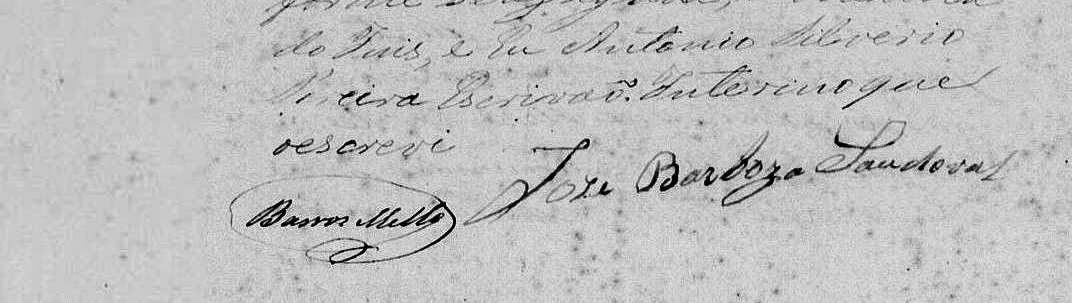 do Juis, e Eu Antonio Silverio
Pereira Escrivaõ Interino que
oescrevi
Joze Barboza Sandoval
Barros Mello